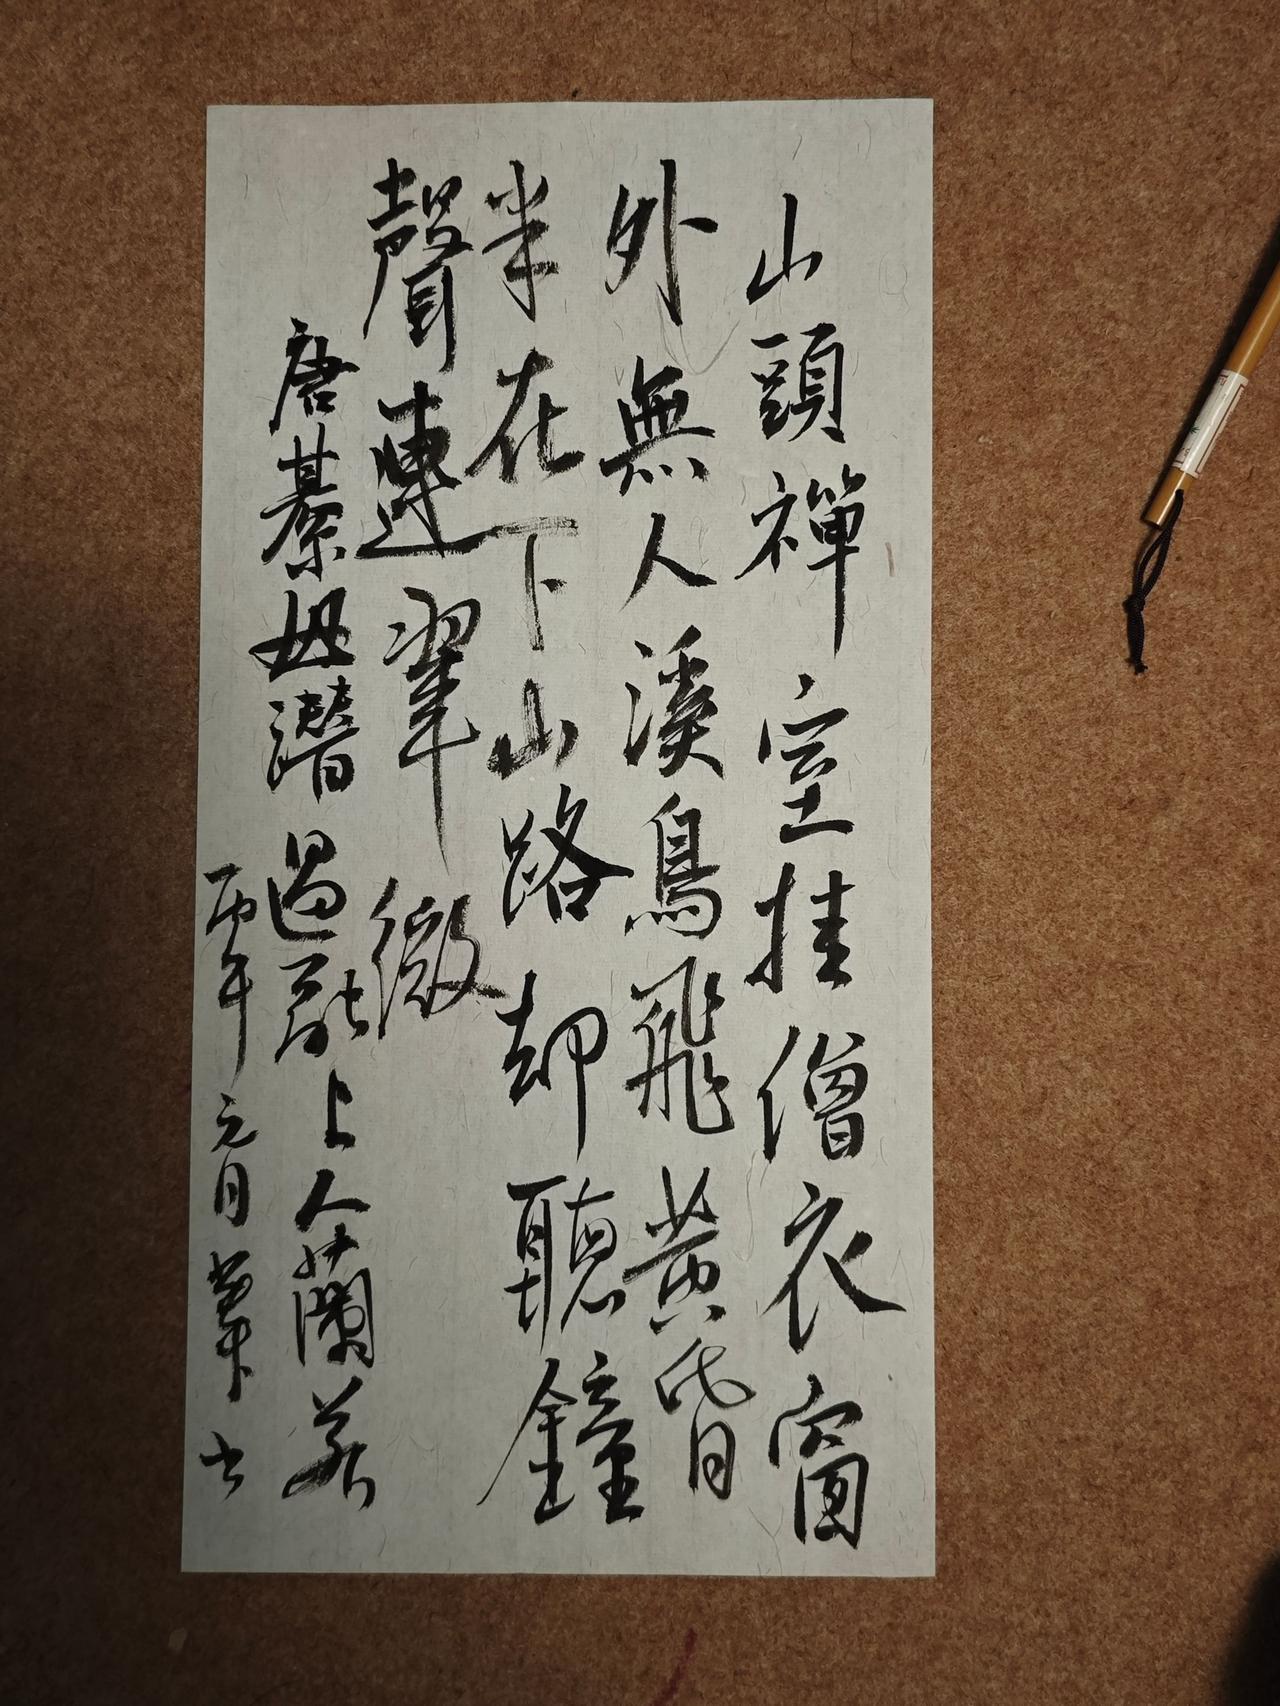 山頭禪室挂僧衣窗
外無人溪鳥飛黄昏
半在下山路却聽鐘
聲連翠微
唐綦毋潛過融上人蘭若
丙午元月 書